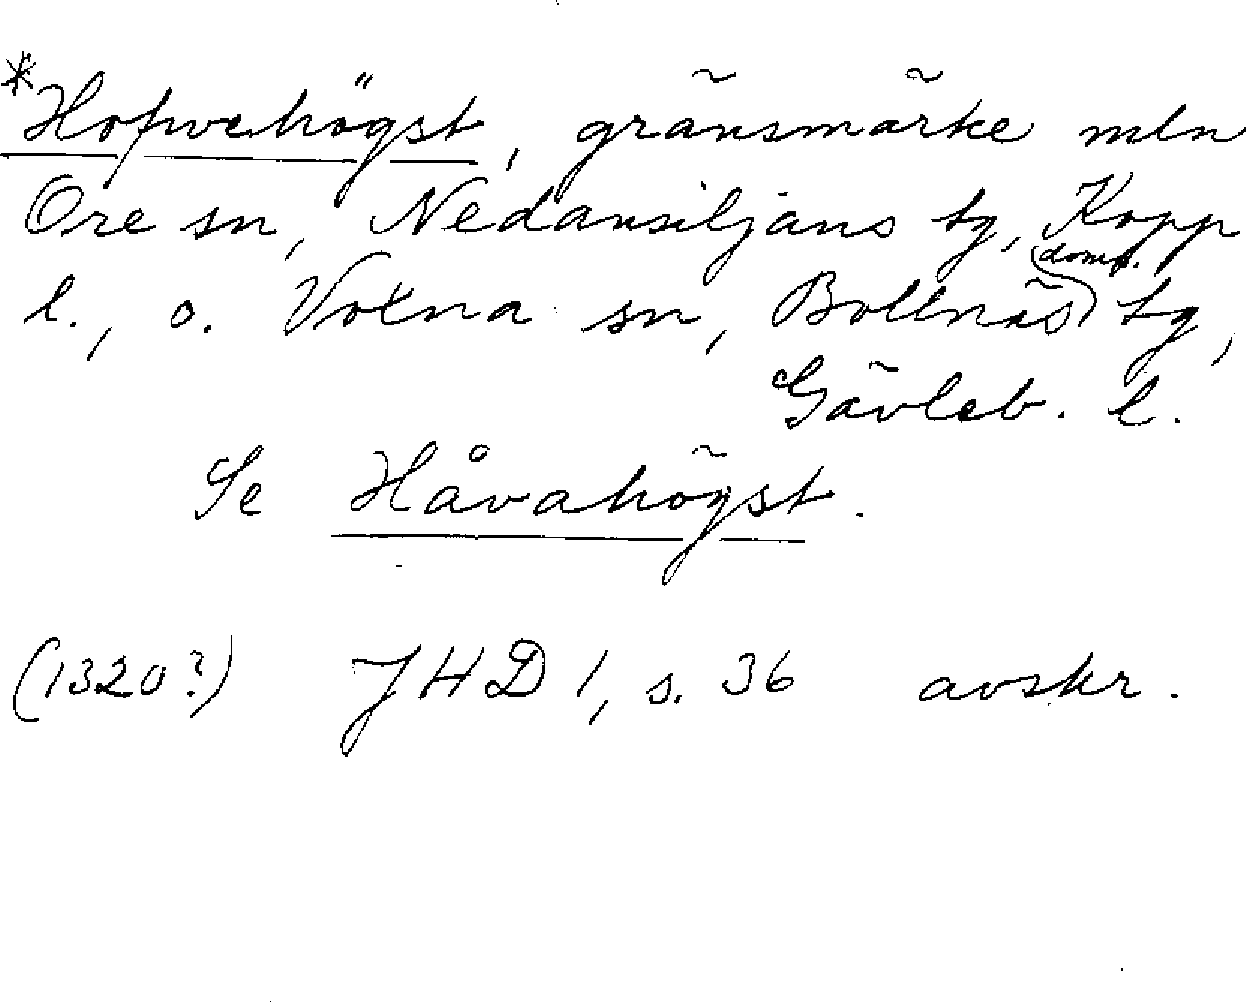 *Hofwehögst, gränsmärke mln
Ore sn, Nedansiljans tg, Kopp
l., o. Voxna sn, Bollnäs doms. tg,
Gävleb. l.
Se Håvahögst.
(1320?) JHD 1, s. 36 avskr.